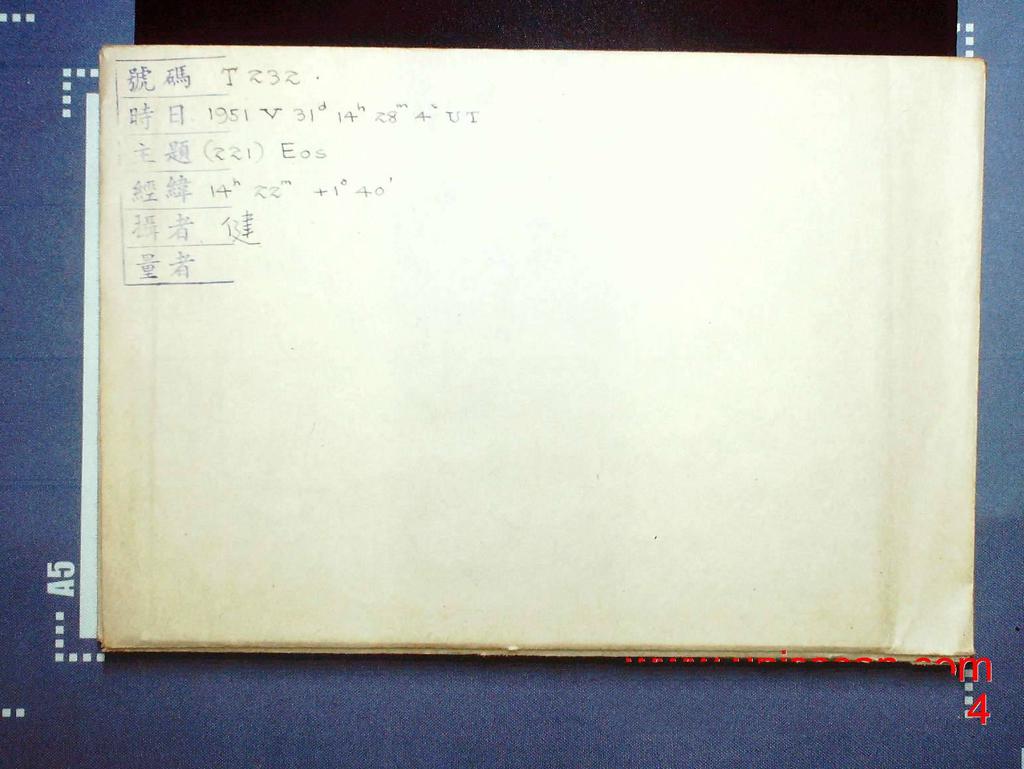 號碼 T 232.
時日 1951 V 31d 14h 28m 4s UT
主題 (221) Eos
經緯 14h 22m +1° 40'
攝者 健
量者
A5
4